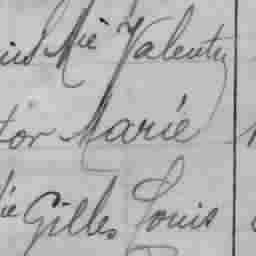 Mie Valentin
tor Marie
lie Gilles Louis